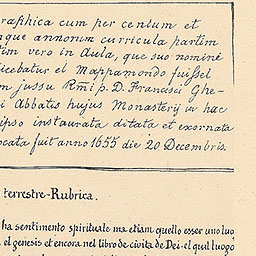 raphica cum per centum et
que annorum curricula partim
tim vero in Aula, que suo nomine
icebatur el Mappamondo fuisset
m jussu Rm̃i p. D. Francisci Ghe-
i Abbatis hujus Monasterij in hac
ipso instaurata ditata et exornata
ocata fuit anno 1655 die 20 Decembris.
terrestre-Rubrica.
ha sentimento spirituale ma etiam quello esser uno luo
el genesis et encora nel libro de civita de Dei-el qual luogo